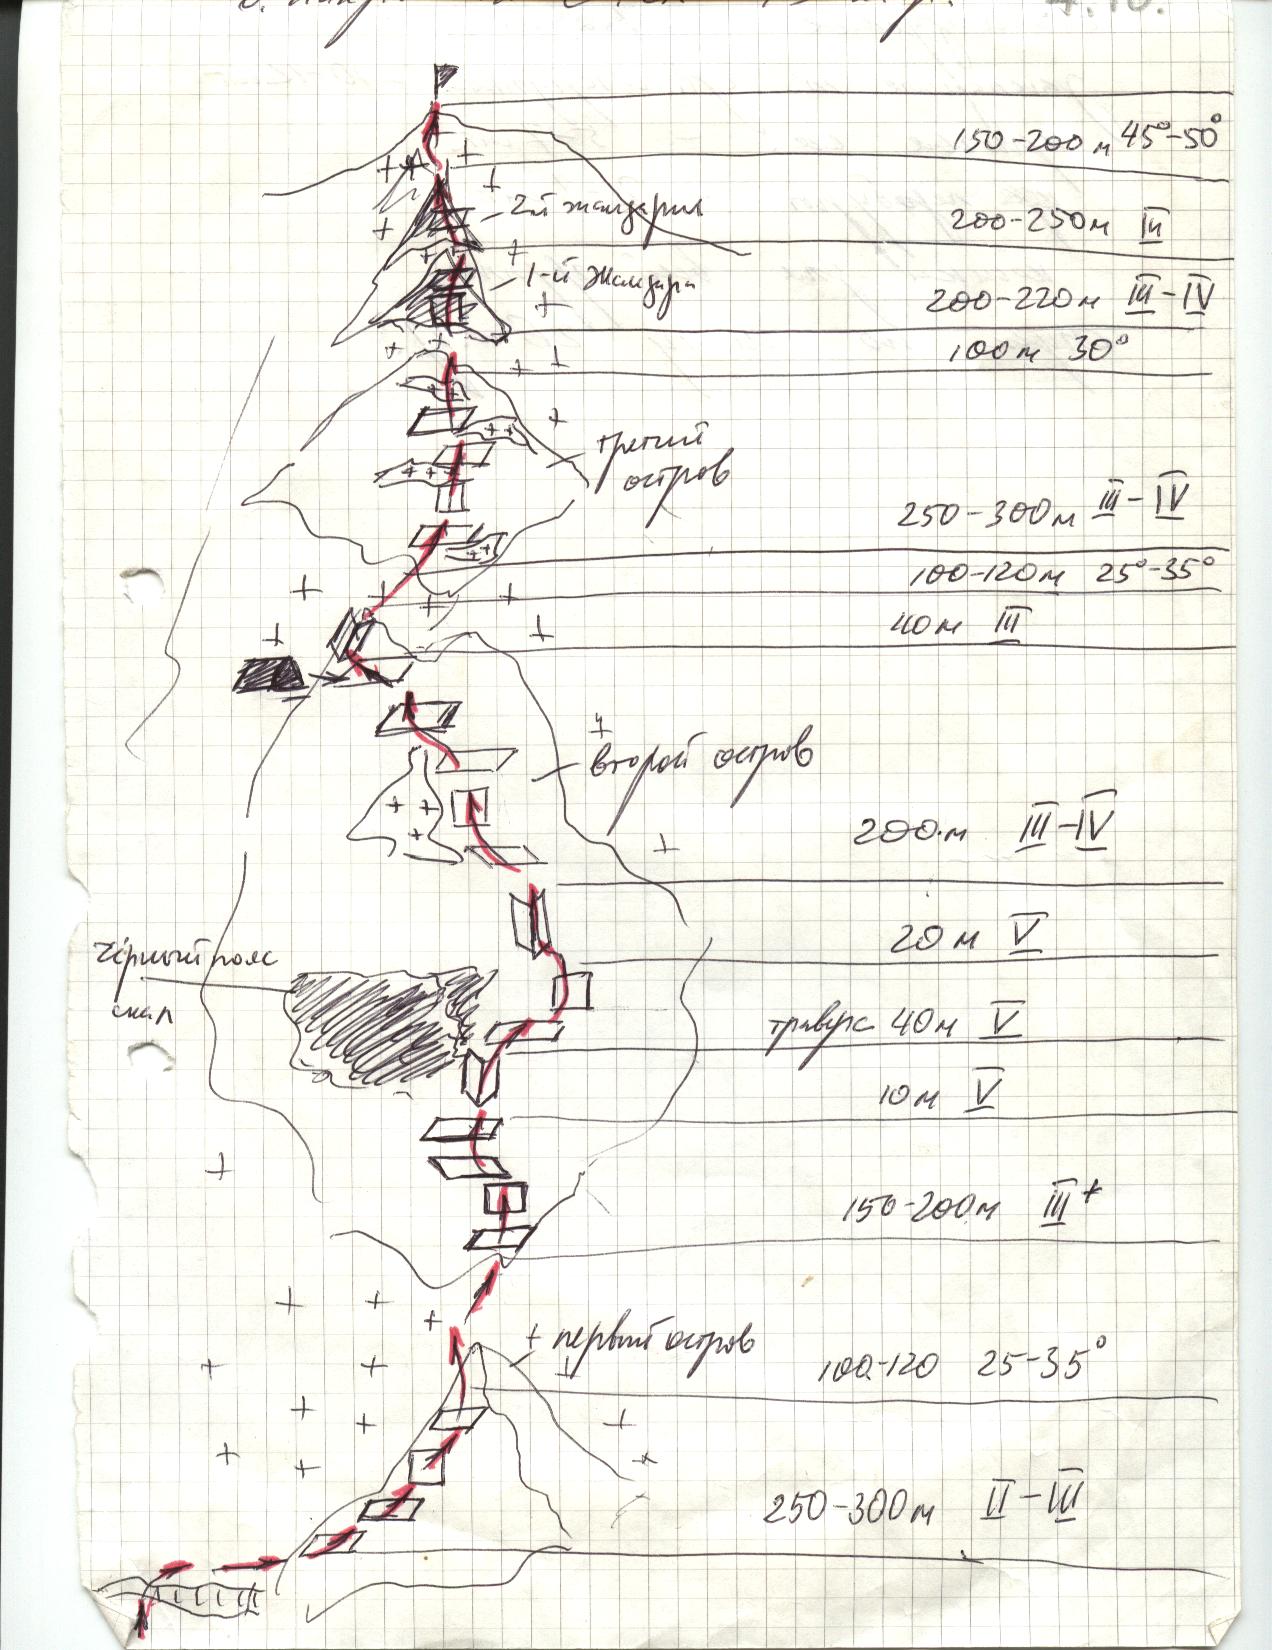 4.10.
150-200м 45°-50°
2й жандарм
200-250м III
1-й жандарм
200-220м III-IV
100м 30°
третий
остров
250-300м III-IV
100-120м 25°-35°
40м III
второй остров
200м III-IV
20м V
чёрный пояс
скал
траверс 40м V
10м V
150-200м III+
первый остров
100-120 25-35°
250-300м II-III